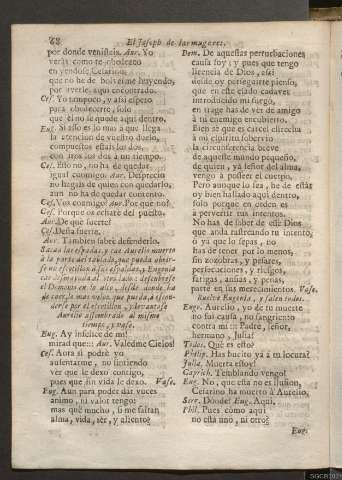 68 El Joseph de las mugeres.
por donde venisteis. Aur. Yo
verás como te obedezco
en yendose Cesarino:
que no he de bolverme huyendo,
por averle aqui encontrado.
Ces. Yo tampoco, y assi espero
para obedecerte, solo
que él no se quede aqui dentro.
Eug. Si esso es lo mas à que llega
la atencion de vuestro duelo,
compuestos estais los dos,
con iros los dos à un tiempo.
Ces. Esto no, no ha de quedar
igual conmigo Aur. Desprecio
no hagais de quien con quedarlo,
aun no ha de quedar contento.
Ces. Vos conmigo? Aur. Por què no?
Ces. Porque os echarè del puesto.
Aur. De què suerte?
Ces. Desta suerte.
Aur. Tambien sabrè defenderlo.
Sacan las espadas, y cae Aurelio muerto
à la parte del tablado, que pueda
Eugenia
el Demonio en lo alto, desde donde ha
Aurelio assombrado al mismo
tiempo, y vase.
Eug. Ay infelice de mi!
mirad que::: Aur. Valedme Cielos!
Ces. Aora si podrè yo
ausentarme, no sintiendo
ver que le dexo contigo,
pues que sin vida le dexo. Vase.
Eug. Aun para poder dar vozes
animo, ni valor tengo:
mas què mucho, si me faltan
alma, vida, sèr, y aliento?
Dem. De aquestas perturbaciones
causa soy; y pues que tengo
licencia de Dios, assi
desde oy perseguirte pienso,
que en este elado cadaver
introducido mi fuego,
en trage has de vèr de amigo
à tu enemigo encubierto.
Bien sè que es carcel estrecha
à mi espiritu sobervio
la circunferencia breve
de aqueste mundo pequeño,
de quien, yà señor del alma,
vengo à posseer el cuerpo.
Pero aunque lo sea, he de estàr
oy bien hallado aqui dentro,
solo porque en orden es
à pervertir tus intentos.
No has de saber de esse Dios
que anda rastreando tu intento,
ò yà que lo sepas, no
has de tener por lo menos,
sin zozobras, y pesares,
persecuciones, y riesgos,
fatigas, ansias, y penas,
parte en sus merecimientos. Vase.
Buelve Eugenia, y salen todos.
Eug. Aurelio, yo de tu muerte
no fui causa, no sangriento
contra mi::: Padre, señor,
hermano, Julia?
Todos. Què es esto?
Philip. Has buelto yà à tu locura?
Julia. Muerta estoy!
Caprich. Temblando vengo!
Eug. No, que esta no es ilusion,
Cesarino ha muerto à Aurelio.
Serg. Donde? Eug. Aqui.
Phil. Pues como aqui
no està uno, ni otro?
Eug.